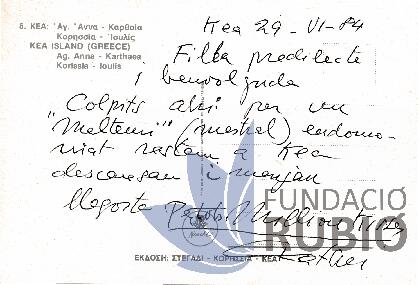 6. ΚΕΑ: Ἁγ. Ἄννα - Καρθαία
Κορησσία - Ἰουλίς
KEA ISLAND (GREECE)
Ag. Anna - Karthaea
Korissia - Ioulis
Kea 29-VI-84
Filla predilecte
i benvolguda
"Colpits ahi per un
"Meltemi" (mestral) endemo-
niat restem a Kea
descansan i menjan
llagosta
FUNDACIÓ
RUBIÓ
Esther
ΕΚΔΟΣΗ: ΣΤΕΓΑΔΙ - ΚΟΡΗΣΣΙΑ - ΚΕΑ